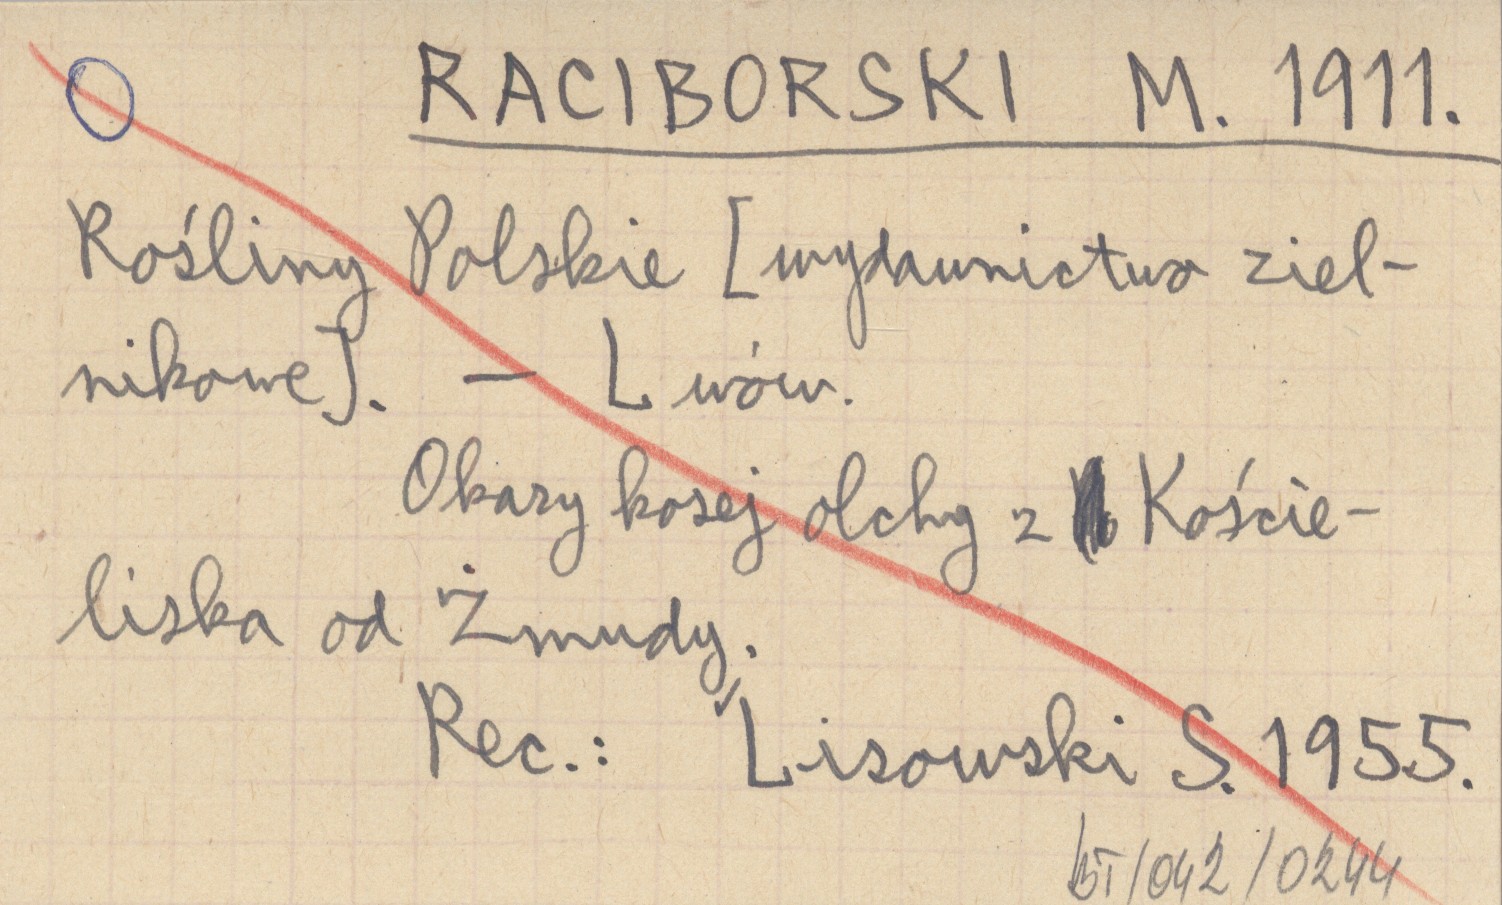 RACIBORSKI M. 1911.
Rośliny Polskie [wydawnictwo ziel-
nikowe]. — Lwów.
Okazy kosej olchy z Koście-
liska od Żmudy.
Rec.: Lisowski S. 1955.
BT/042/0244